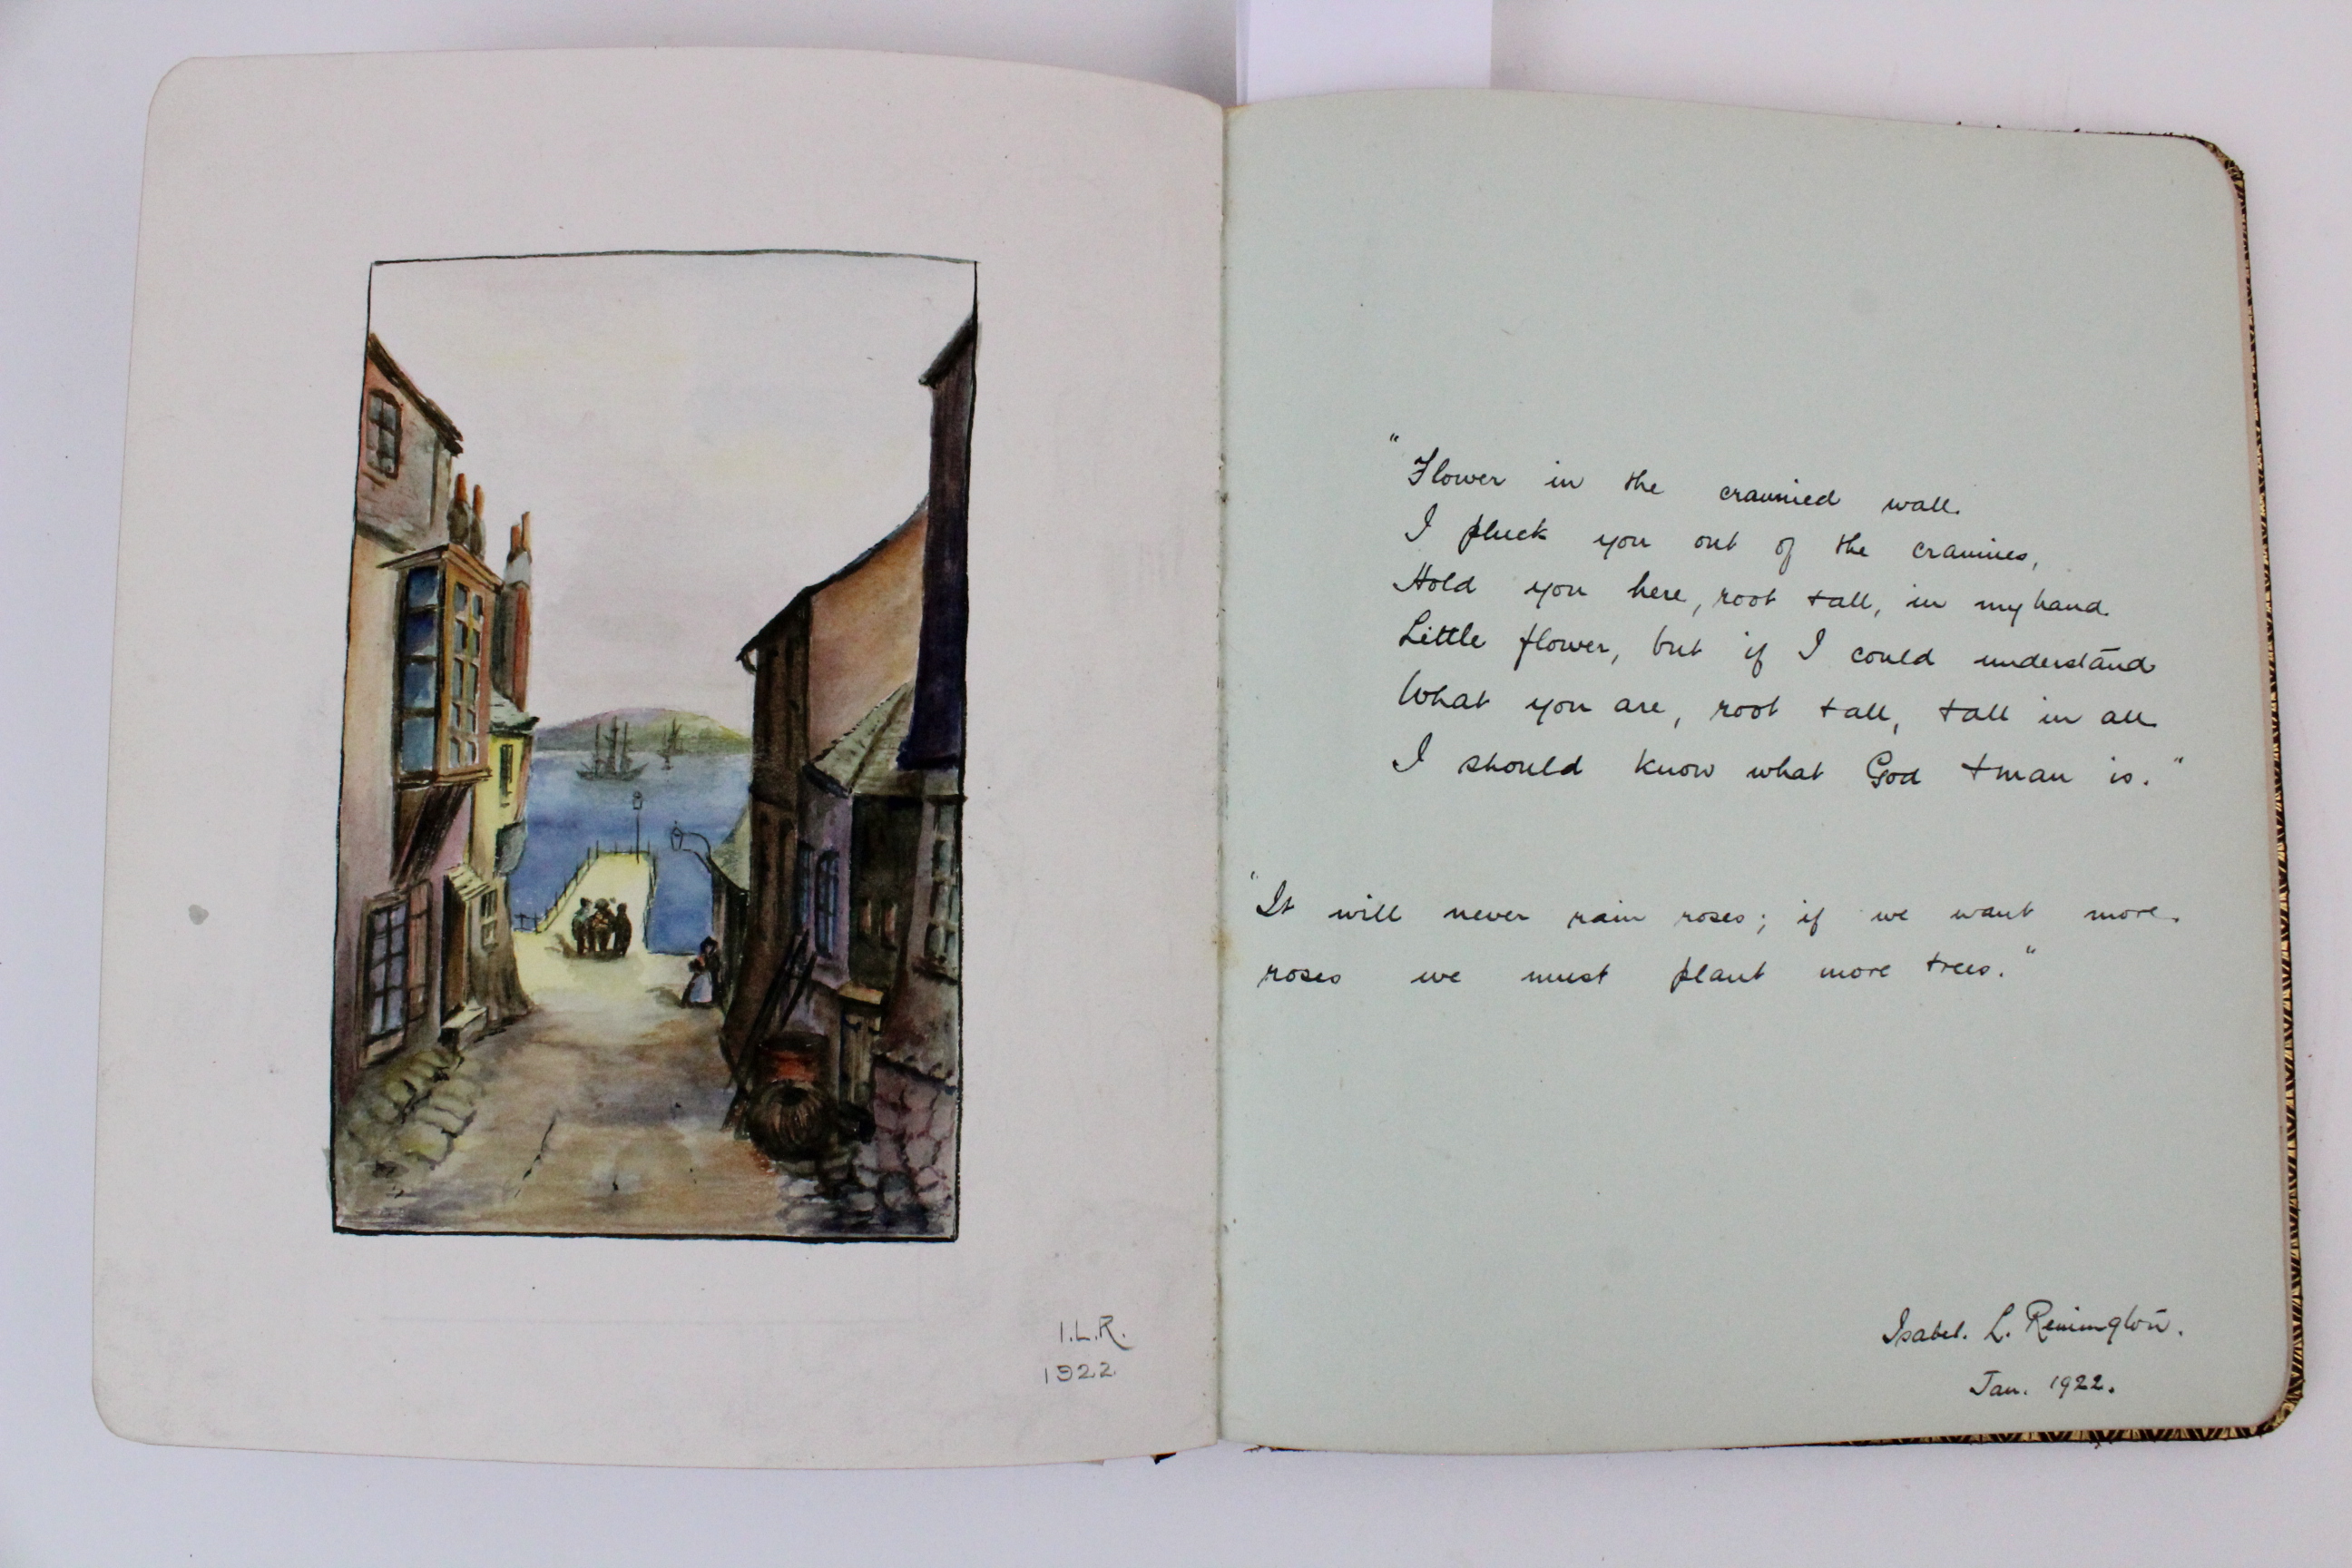 I.L.R.
1922
"Flower in the crannied wall.
I pluck you out of the crannies,
Hold you here, root + all, in my hand.
Little flower, but if I could understand
What you are, root + all, + all in all
I should know what God + man is."
"It will never rain roses; if we want more.
roses we must plant more trees."
Isabel. L. Remington.
Jan. 1922.